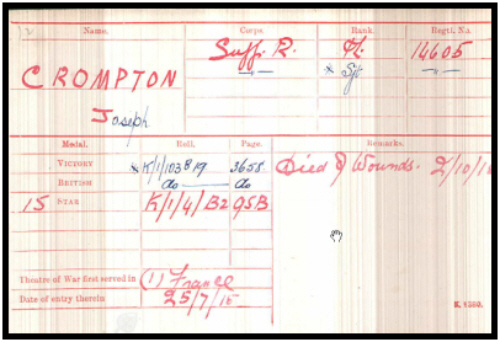 Name. Corps. Rank. Regtl. No.
Suff. R. Pte. 14605
CROMPTON —"— * Sjt —"—
Joseph
Medal. Roll. Page. Remarks.
VICTORY * K/1/103B19 3658 Died of Wounds. 2/10/1
BRITISH do ——— do
15 STAR K/1/4/B2 95B
Theatre of War first served in (1) France
Date of entry therein 25/7/15
K. 1380.